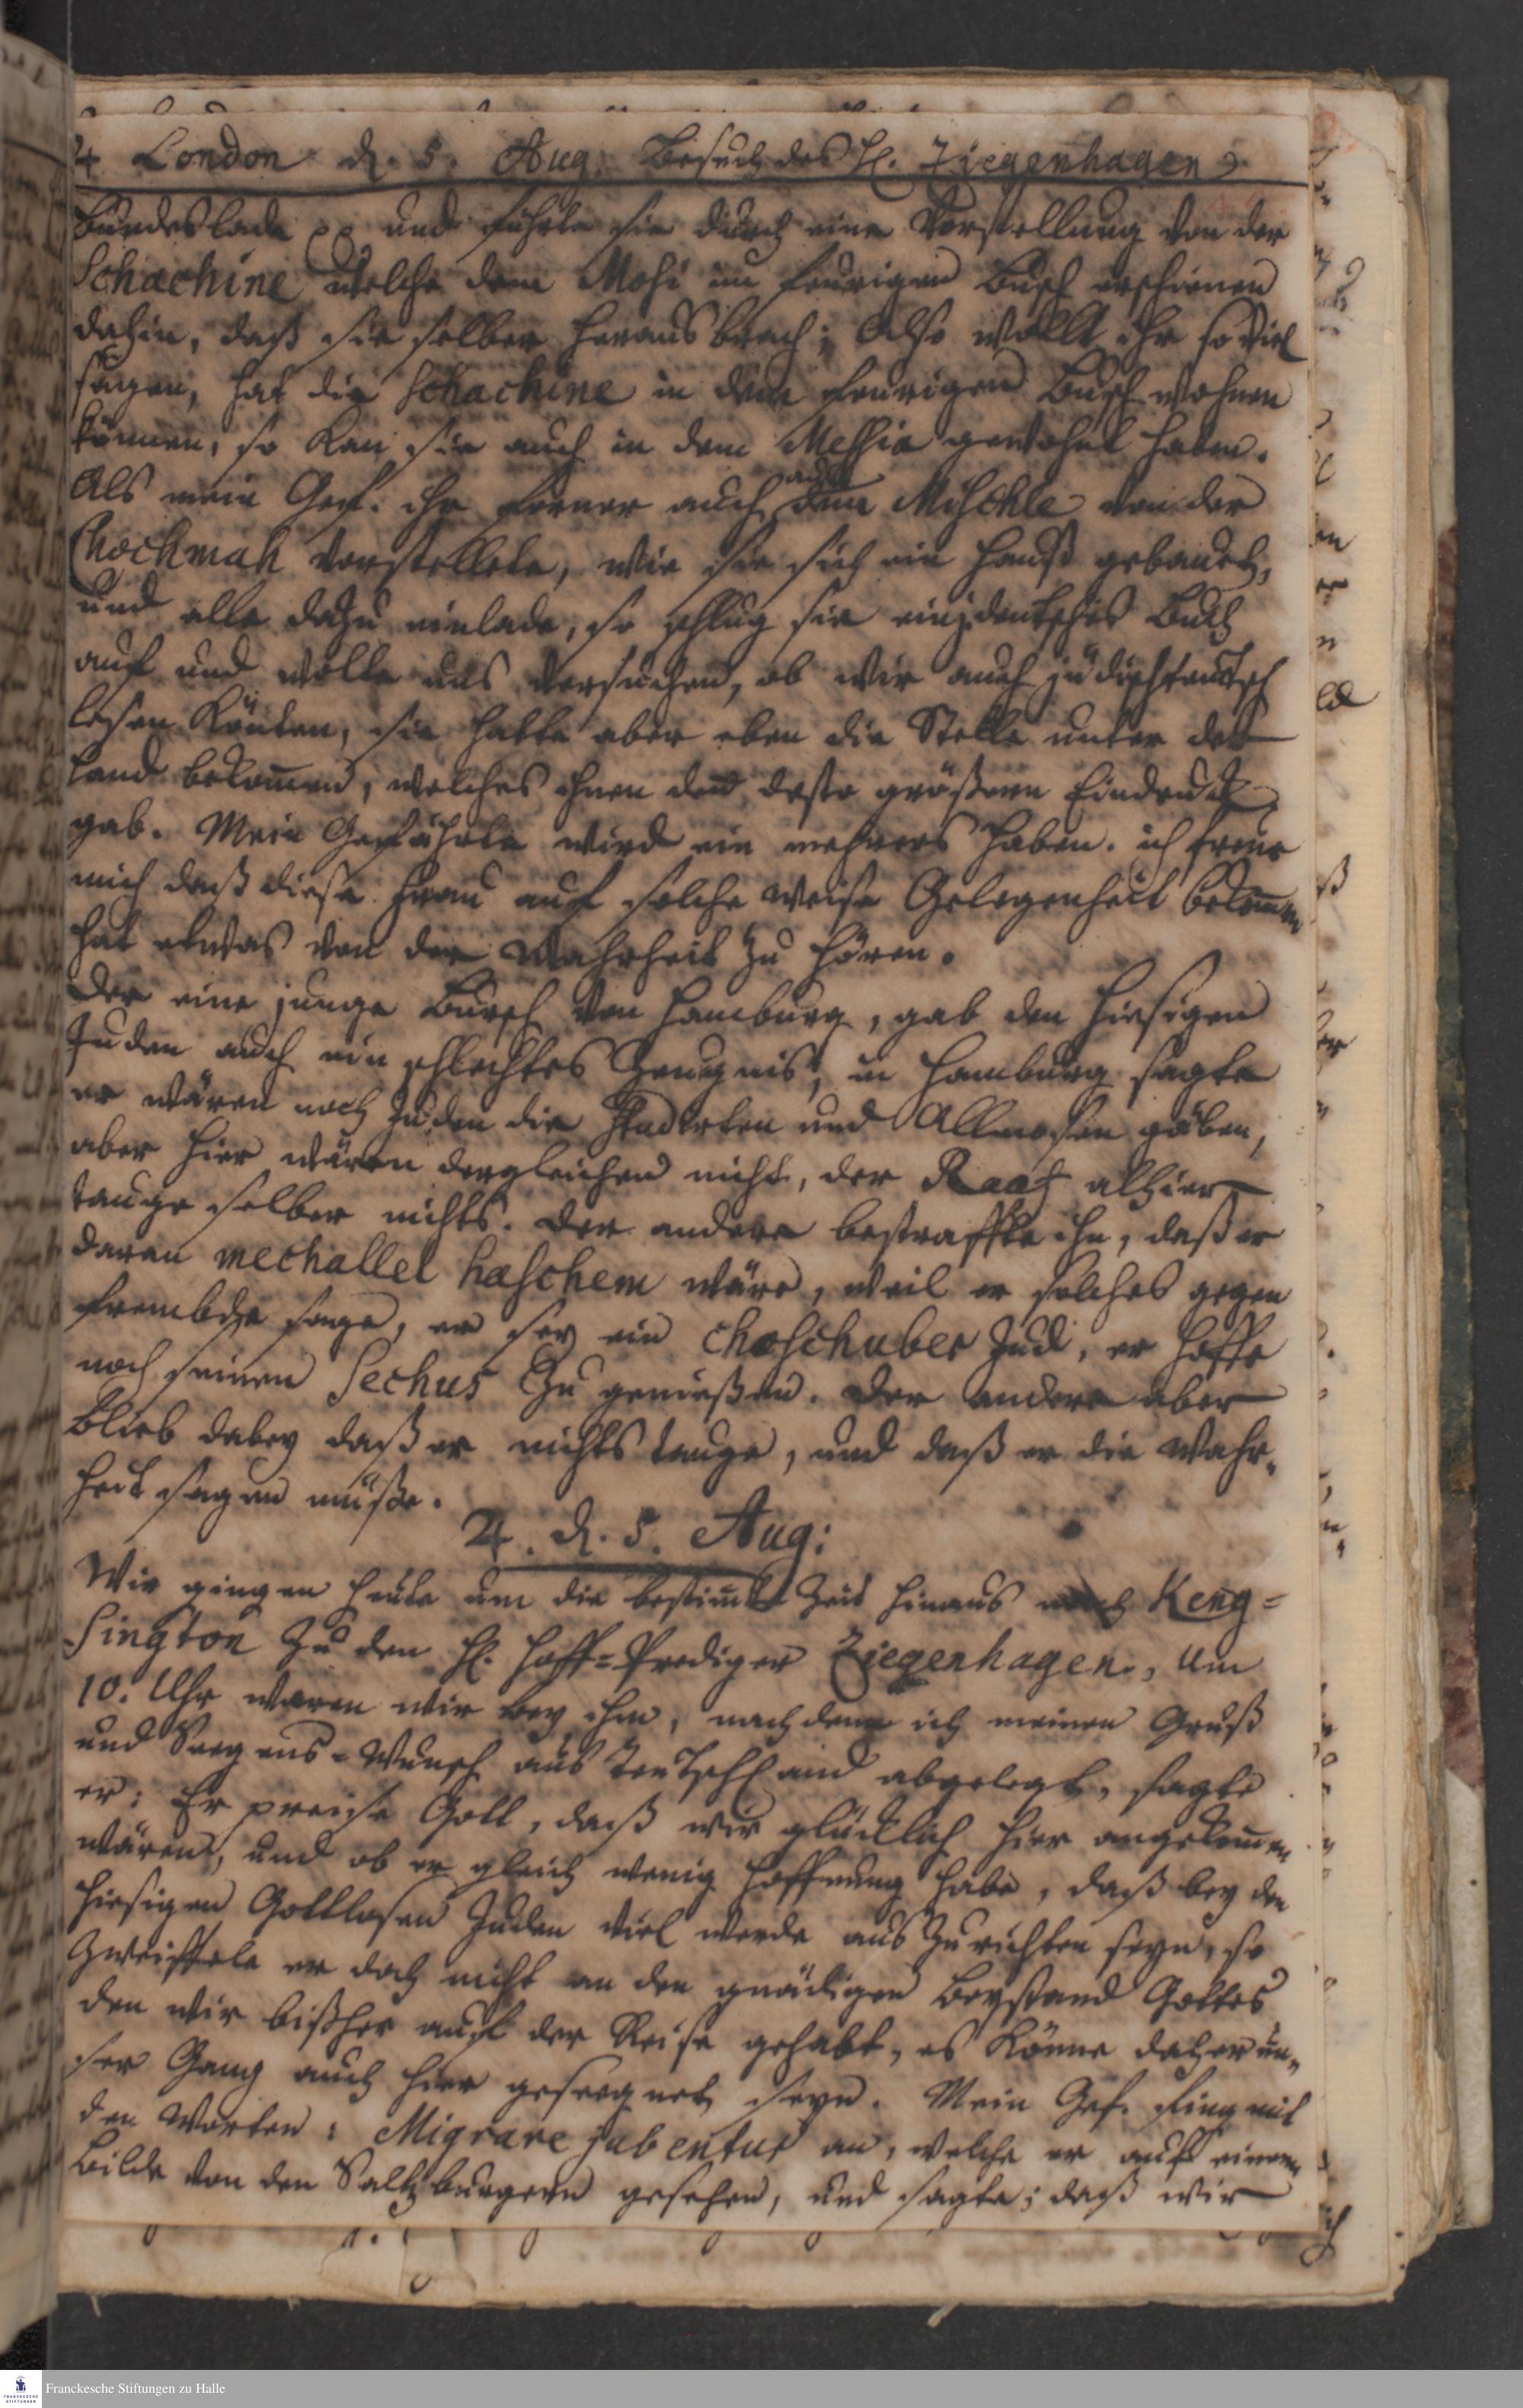 4 London d. 5. Aug. Besuch des H. Ziegenhagen
Bundeslade pp und führte sie durch eine Vorstellung von der
Schachine welche dem Mosi im feurigen Busch erschienen
dahin, daß sie selber heraus brach; Also wollt ihr so viel
sagen, hat die Schachine in dem feurigen Busch wohnen
können, so kan sie auch in dem Messia gewohnt haben.
Als mein Gef. ihr ferner auch aus dem Mischle von der
Chochmah vorstellete, wie sie sich ein Hauß gebauet,
und alle dazu einlade, so schlug sie ein jüdenteutsches Buch
auf und wolte uns versuchen, ob wir auch jüdischteutsch
lesen könten, sie hatte aber eben die Stelle unter der
Hand bekommen, welches ihnen den desto größern Eindruck
gab. Mein Gefährte wird ein mehrers haben. ich freue
mich daß diese Frau auf solche weise Gelegenheit bekommen
hat etwas von der Wahrheit zu hören.
Der eine junge Bursch von Hamburg, gab den hiesigen
Juden auch ein schlechtes Zeugnis, in Hamburg sagte
er wären noch Juden die studirten und Allmosen gäben,
aber hier wären dergleichen nicht, der Raaf alhier
tauge selber nichts. Der andere bestraffte ihn, daß er
daran mechallel haschem wäre, weil er solches gegen
frembde sage, er sey ein choschuber Jud, er hoffe
noch seinen Sechus zu genießen. Der andere aber
blieb dabey daß er nichts tauge, und daß er die Wahr-
heit sagen müße.
4. d. 5. Aug:
Wir gingen heute um die bestimte Zeit hinaus nach Keng=
sington zu den H. Hoff=Prediger Ziegenhagen, um
10. Uhr waren wir bey ihm, nachdem ich meinen Gruß
und Seegens-Wunsch aus Teutschland abgelegt, sagte
er: Er preise Gott, daß wir glücklich hier angekommen
wären, und ob er gleich wenig Hoffnung habe, daß bey den
hiesigen Gottlosen Juden viel werde auszurichten seyn, so
zweiffele er doch nicht an den gnädigen Beystand Gottes
den wir bißher auf der Reise gehabt, es könne daher un-
ser Gang auch hier geseegnet seyn. Mein Gef. fing mit
den Worten: Migrare jubentur an, welche er auf einem
Bilde von den Saltzburgern gesehen, und sagte; daß wir
Franckesche Stiftungen zu Halle